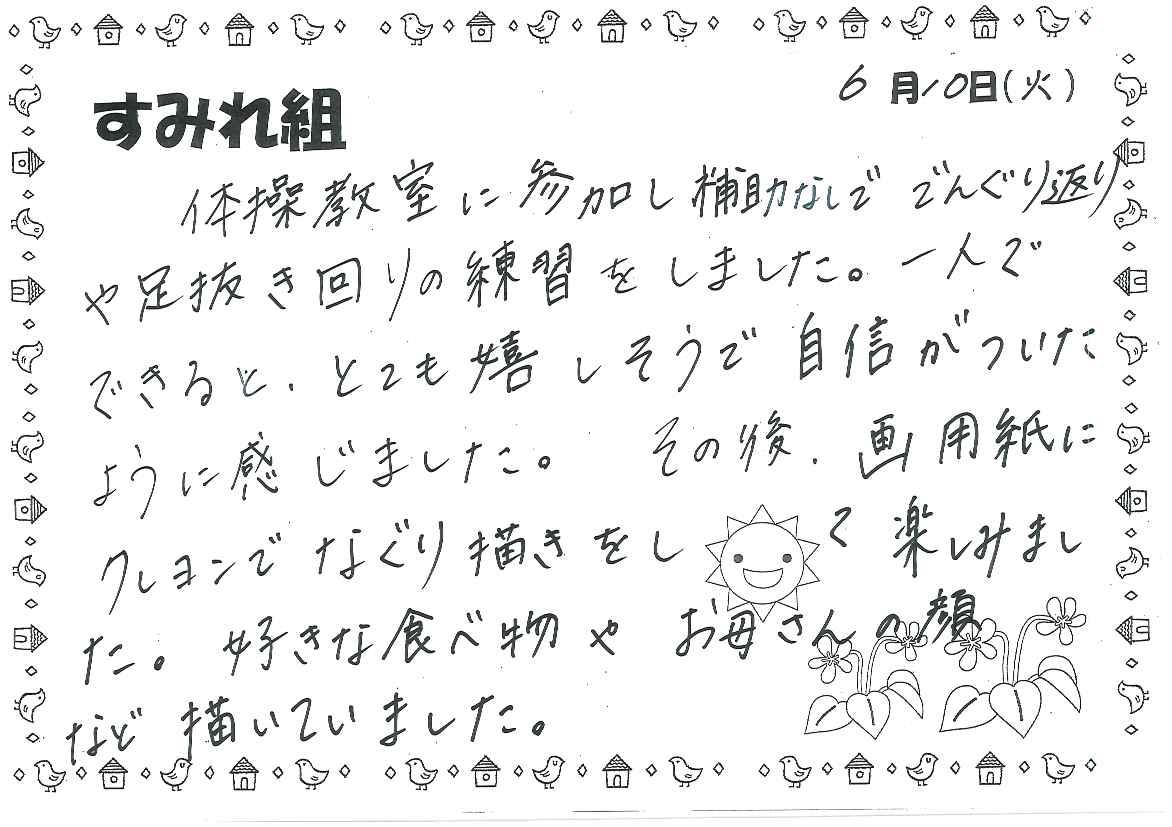 6月10日(火)
すみれ組
体操教室に参加し補助なしででんぐり返り
や足抜き回りの練習をしました。一人で
できると、とても嬉しそうで自信がついた
ように感じました。 その後、画用紙に
クレヨンでなぐり描きをして楽しみまし
た。好きな食べ物や お母さんの顔
など描いていました。